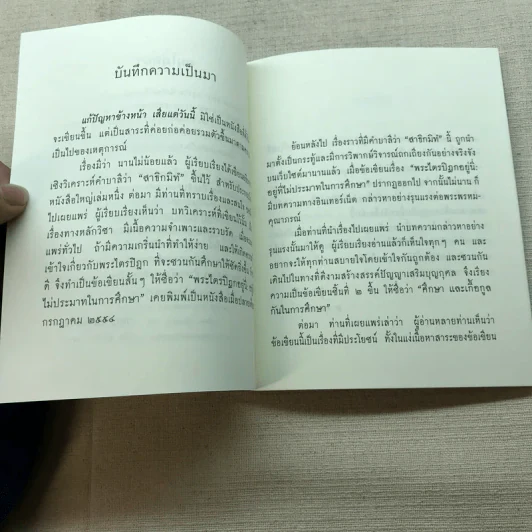 บันทึกความเป็นมา
แก้ปัญหาข้างหน้า เสียแต่วันนี้ มิใช่เป็นหนังสือที่
จะเขียนขึ้น แต่เป็นสาระที่ค่อยก่อค่อยรวมตัวขึ้นมา
เป็นไปของเหตุการณ์
เรื่องมีว่า นานไม่น้อยแล้ว ผู้เรียบเรียงได้เขียน
เชิงวิเคราะห์คำบาลีว่า “สาชิกมิทํ” ขึ้นไว้ สำหรับ
หนังสือใหญ่เล่มหนึ่ง ต่อมา มีท่านที่ทราบเรื่องและสนใจ
ไปเผยแพร่ ผู้เรียบเรียงเห็นว่า บทวิเคราะห์ที่เขียนไว้นั้น
เรื่องทางหลักวิชา มีเนื้อความจำเพาะและรวบรัด เมื่อ
แพร่ทั่วไป ถ้ามีความเกริ่นนำที่ทำให้ง่าย และให้
เข้าใจเกี่ยวกับพระไตรปิฎก ที่จะชวนกันศึกษาให้ชัดยิ่งขึ้น
ดี จึงทำเป็นข้อเขียนสั้นๆ ให้ชื่อว่า “พระไตรปิฎกอยู่นี่:
ไม่ประมาทในการศึกษา” เคยพิมพ์เป็นหนังสือเมื่อ
กรกฎาคม ๒๕๕๔
ย้อนหลังไป เรื่องราวที่มีคำบาลีว่า “สาชิกมิทํ” นี้ ถูกนำ
มาตั้งเป็นกระทู้และมีการวิพากษ์วิจารณ์ถกเถียงกันอย่างจริงจัง
บนเว็บไซต์มานานแล้ว เมื่อข้อเขียนเรื่อง “พระไตรปิฎกอยู่นี่:
อยู่ที่ไม่ประมาทในการศึกษา” ปรากฏออกไป จากนั้นไม่นาน ก็
มีบทความทางอินเทอร์เน็ต กล่าวหาอย่างรุนแรงต่อพระพรหม-
คุณาภรณ์
เมื่อท่านที่นำเรื่องไปเผยแพร่ นำบทความกล่าวหาอย่าง
รุนแรงนั้นมาให้ดู ผู้เรียบเรียงอ่านแล้วก็เห็นใจทุกๆ คน และ
อยากจะให้ทุกท่านสบายใจโดยเข้าใจกันถูกต้อง และชวนกัน
เดินไปในทางที่ดีงามสร้างสรรค์ปัญญาเสริมบุญกุศล จึงเรียง
ความเป็นข้อเขียนชิ้นที่ ๒ ขึ้น ให้ชื่อว่า “ศึกษา และเกื้อกูล
กันในการศึกษา”
ต่อมา ท่านที่เผยแพร่เล่าว่า ผู้อ่านหลายท่านเห็นว่า
ข้อเขียนนี้เป็นเรื่องที่มีประโยชน์ ทั้งในแง่เนื้อหาสาระของข้อเขียน